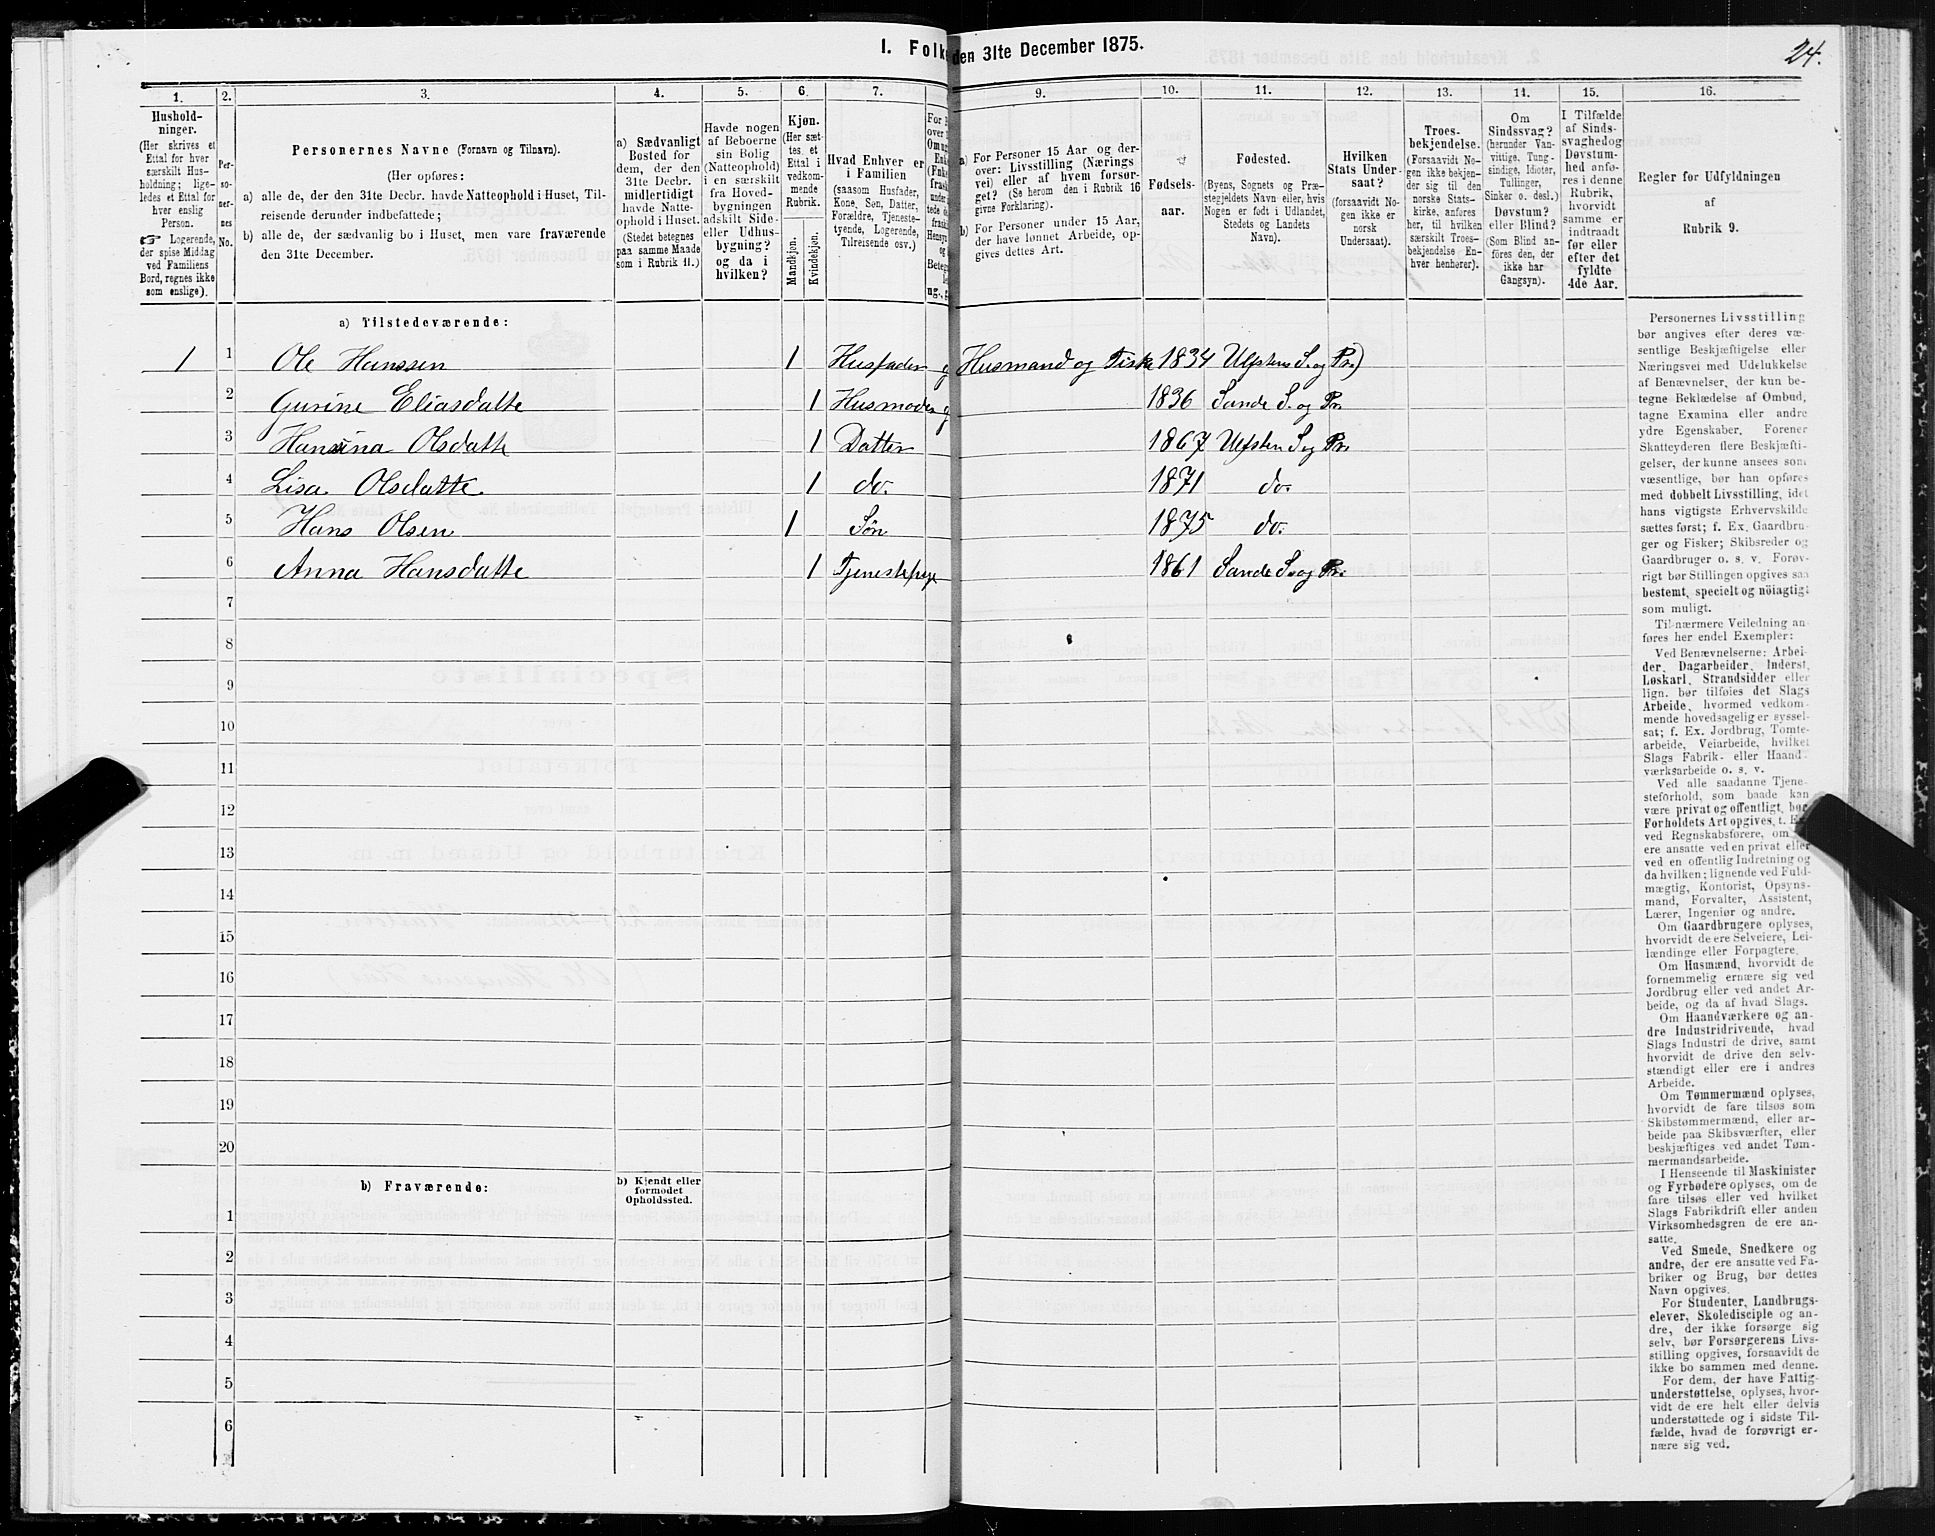 24.
I. Folke den 31te December 1875.
1. 2. 3. 4. 5. 6. 7. 9. 10. 11. 12. 13. 14. 15. 16.
Hushold-
ninger.
(Her skrives et
Ettal for hver
særskilt Hus-
holdning; lige-
ledes et Ettal for
hver enslig
Person.
☞ Logerende,
der spise Middag
ved Familiens
Bord, regnes ikke
som enslige).
Per-
so-
ner-
nes
No.
Personernes Navne (Fornavn og Tilnavn).
(Her opføres:
a) alle de, der den 31te Decbr. havde Natteophold i Huset, Til-
reisende derunder indbefattede;
b) alle de, der sædvanlig bo i Huset, men vare fraværende
den 31te December.
a) Sædvanligt
Bosted for
dem, der den
31te Decbr.
midlertidigt
havde Natte-
ophold i Huset.
(Stedet betegnes
paa samme Maade
som i Rubrik 11.)
Havde nogen
af Beboerne
sin Bolig
(Natteophold)
i en særskilt
fra Hoved-
bygningen
adskilt Side-
eller Udhus-
bygning?
og da i
hvilken?
Kjøn.
(Her sæt-
tes et
Ettal i
vedkom-
mende
Rubrik.
Mandkjøn.
Kvindekjøn.
Hvad Enhver er
i Familien
(saasom Husfader,
Kone, Søn, Datter,
Forældre, Tjeneste-
tyende, Logerende,
Tilreisende osv.)
a) For Personer 15 Aar og der-
over: Livsstilling (Nærings
vei) eller af hvem forsør-
get? (Se herom den i Rubrik 16
givne Forklaring).
b) For Personer under 15 Aar,
der have lønnet Arbeide, op-
gives dettes Art.
Fødsels-
aar.
Fødested.
(Byens, Sognets og Præ-
stegjeldets Navn eller, hvis
Nogen er født i Udlandet,
Stedets og Landets
Navn).
Hvilken
Stats Under-
saat?
(forsaavidt No-
gen ikke er
norsk
Undersaat).
Troes-
bekjendelse.
(Forsaavidt No-
gen ikke bekjen-
der sig til den
norske Stats-
kirke, anføres
her, til hvilken
særskilt Troes-
bekjendelse En-
hver henhører).
Om
Sindssvag?
(herunder Van-
vittige, Tung-
sindige, Idioter,
Tullinger,
Sinker o. desl.)
Døvstum?
eller Blind?
(Som Blind an-
føres den, der
ikke har
Gangsyn).
I Tilfælde
af Sinds-
svaghed og
Døvstum-
hed anfø-
res i denne
Rubrik,
hvorvidt
samme er
indtraadt
før eller
efter det
fyldte
4de Aar.
Regler for Udfyldningen
af
Rubrik 9.
a) Tilstedeværende:
1 1 Ole Hanssen 1 Husfader Husmand og Fisker 1834 Ulfsten S. og Pr.
2 Gurine Eliasdatte 1 Husmoder 1836 Sande S. og Pr.
3 Hansina Olsdatte 1 Datter 1867 Ulfsten S og Pr.
4 Lisa Olsdatte 1 do. 1871 do.
5 Hans Olsen 1 Søn 1875 do.
6 Anna Hansdatte 1 Tjenestepige 1861 Sande S. og Pr.
7
8
9
10
11
12
13
14
15
16
17
18
19
20
b) Fraværende:
b) Kjendt eller
formodet
Opholdssted.
1
2
3
4
5
6
Personernes Livsstilling
bør angives efter deres væ-
sentlige Beskjæftigelse eller
Næringsvei med Udelukkelse
af Benævnelser, der kun be-
tegne Beklædelse af Ombud,
tagne Examina eller andre
ydre Egenskaber. Forener
Skatteyderen flere Beskjæfti-
gelser, der kunne ansees som
væsentlige, bør han opføres
med dobbelt Livsstilling, idet
hans vigtigste Erhvervskilde
sættes først; f. Ex. Gaardbru-
ger og Fisker; Skibsreder og
Gaardbruger o. s. v. Forøv-
rigt bør Stillingen opgives saa
bestemt, specielt og nöiagtigt
som muligt.
Til nærmere Veiledning an-
føres her endel Exempler:
Ved Benævnelserne: Arbei-
der, Dagarbeider, Inderst,
Løskarl, Strandsidder eller
lign. bør tilføies det Slags
Arbeide, hvormed vedkom-
mende hovedsagelig er syssel-
sat; f. Ex. Jordbrug, Tomte-
arbeide, Veiarbeide, hvilket
Slags Fabrik- eller Haand-
værksarbeide o. s. v.
Ved alle saadanne Tjene-
steforhold, som baade kan
være privat og offentligt, bør
Forholdets Art opgives, t. Ex.
ved Regnskabsførere, om
ere ansatte ved en privat eller
ved en offentlig Indretning og
da hvilken; lignende ved Fuld-
mægtig, Kontorist, Opsyns-
mand, Forvalter, Assistent,
Lærer, Ingeniør og andre.
Om Gaardbrugere oplyses,
hvorvidt de ere Selveiere, Lei-
lændinge eller Forpagtere.
Om Husmænd, hvorvidt de
fornemmelig ernære sig ved
Jordbrug eller ved andet Ar-
beide, og da af hvad Slags.
Om Haandværkere og an-
dre Industridrivende, hvad
Slags Industri de drive, samt
hvorvidt de drive den selv-
stændigt eller ere i andres
Arbeide.
Om Tømmermænd oplyses,
hvorvidt de fare tilsøs som
Skibstømmermænd, eller ar-
beide paa Skibsværfter, eller
beskjæftiges ved andet Tøm-
mermandsarbeide.
I Henseende til Maskinister
og Fyrbødere oplyses, om de
fare tilsøs eller ved hvilket
Slags Fabrikdrift eller anden
Virksomhedsgren de ere an-
satte.
Ved Smede, Snedkere og
andre, der ere ansatte ved Fa-
briker og Brug, bør dettes
Navn opgives.
For Studenter, Landbrugs-
elever, Skoledisciple og an-
dre, der ikke forsørge sig
selv, bør Forsørgerens Livs-
stilling opgives, forsaavidt de
ikke bo sammen med denne.
For dem, der have Fattig-
understøttelse, oplyses, hvor-
vidt de ere helt eller delvis
understøttede og i sidste Til-
fælde, hvad de forøvrigt er-
nære sig ved.